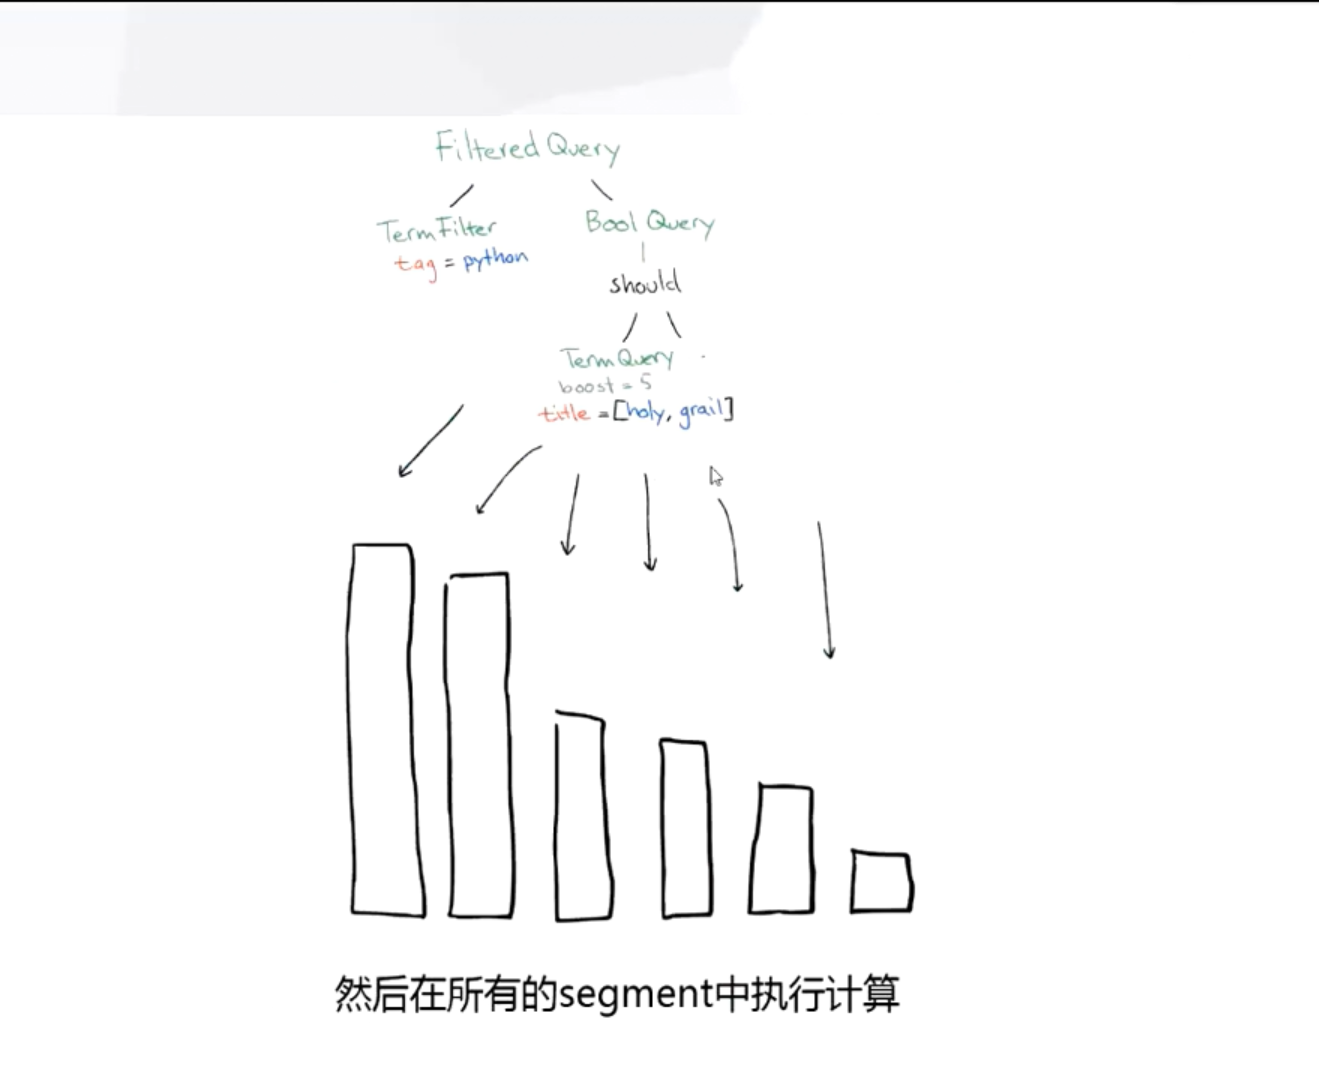 Filtered Query
Term Filter
tag = python
Bool Query
should
Term Query
boost = 5
title = [holy, grail]
然后在所有的segment中执行计算